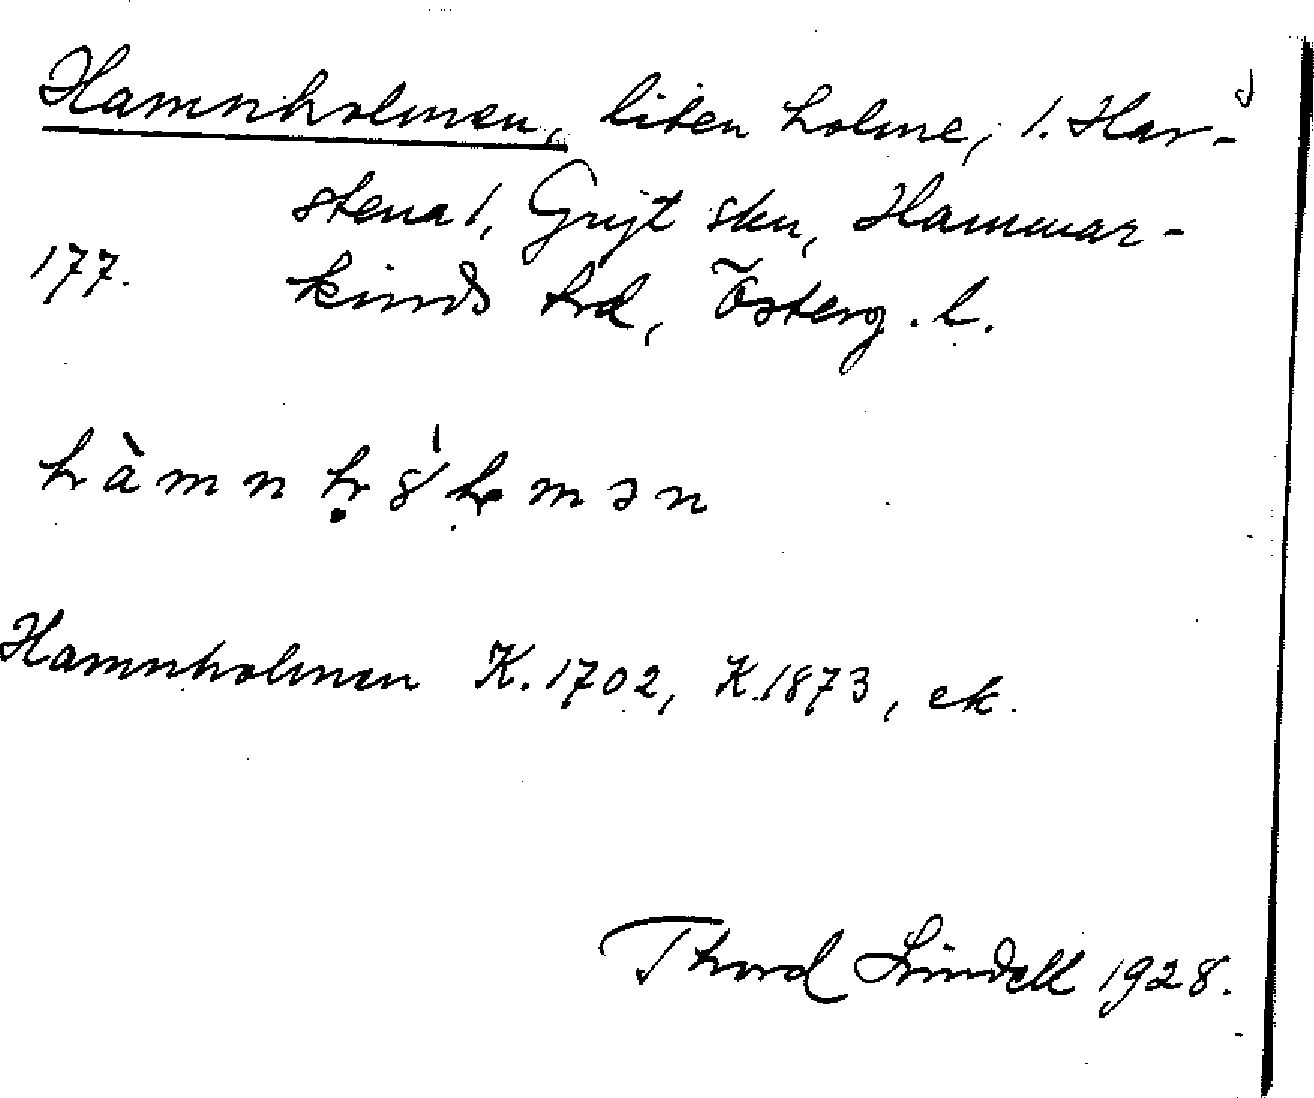 Hamnholmen, liten holme, 1. Har-
stena 1, Gryt skn, Hammar-
177. kinds hrd, Österg. l.
hàmnhɷ̣lmən
Hamnholmen K. 1702, K. 1873, ek.
Thord Lindell 1928.